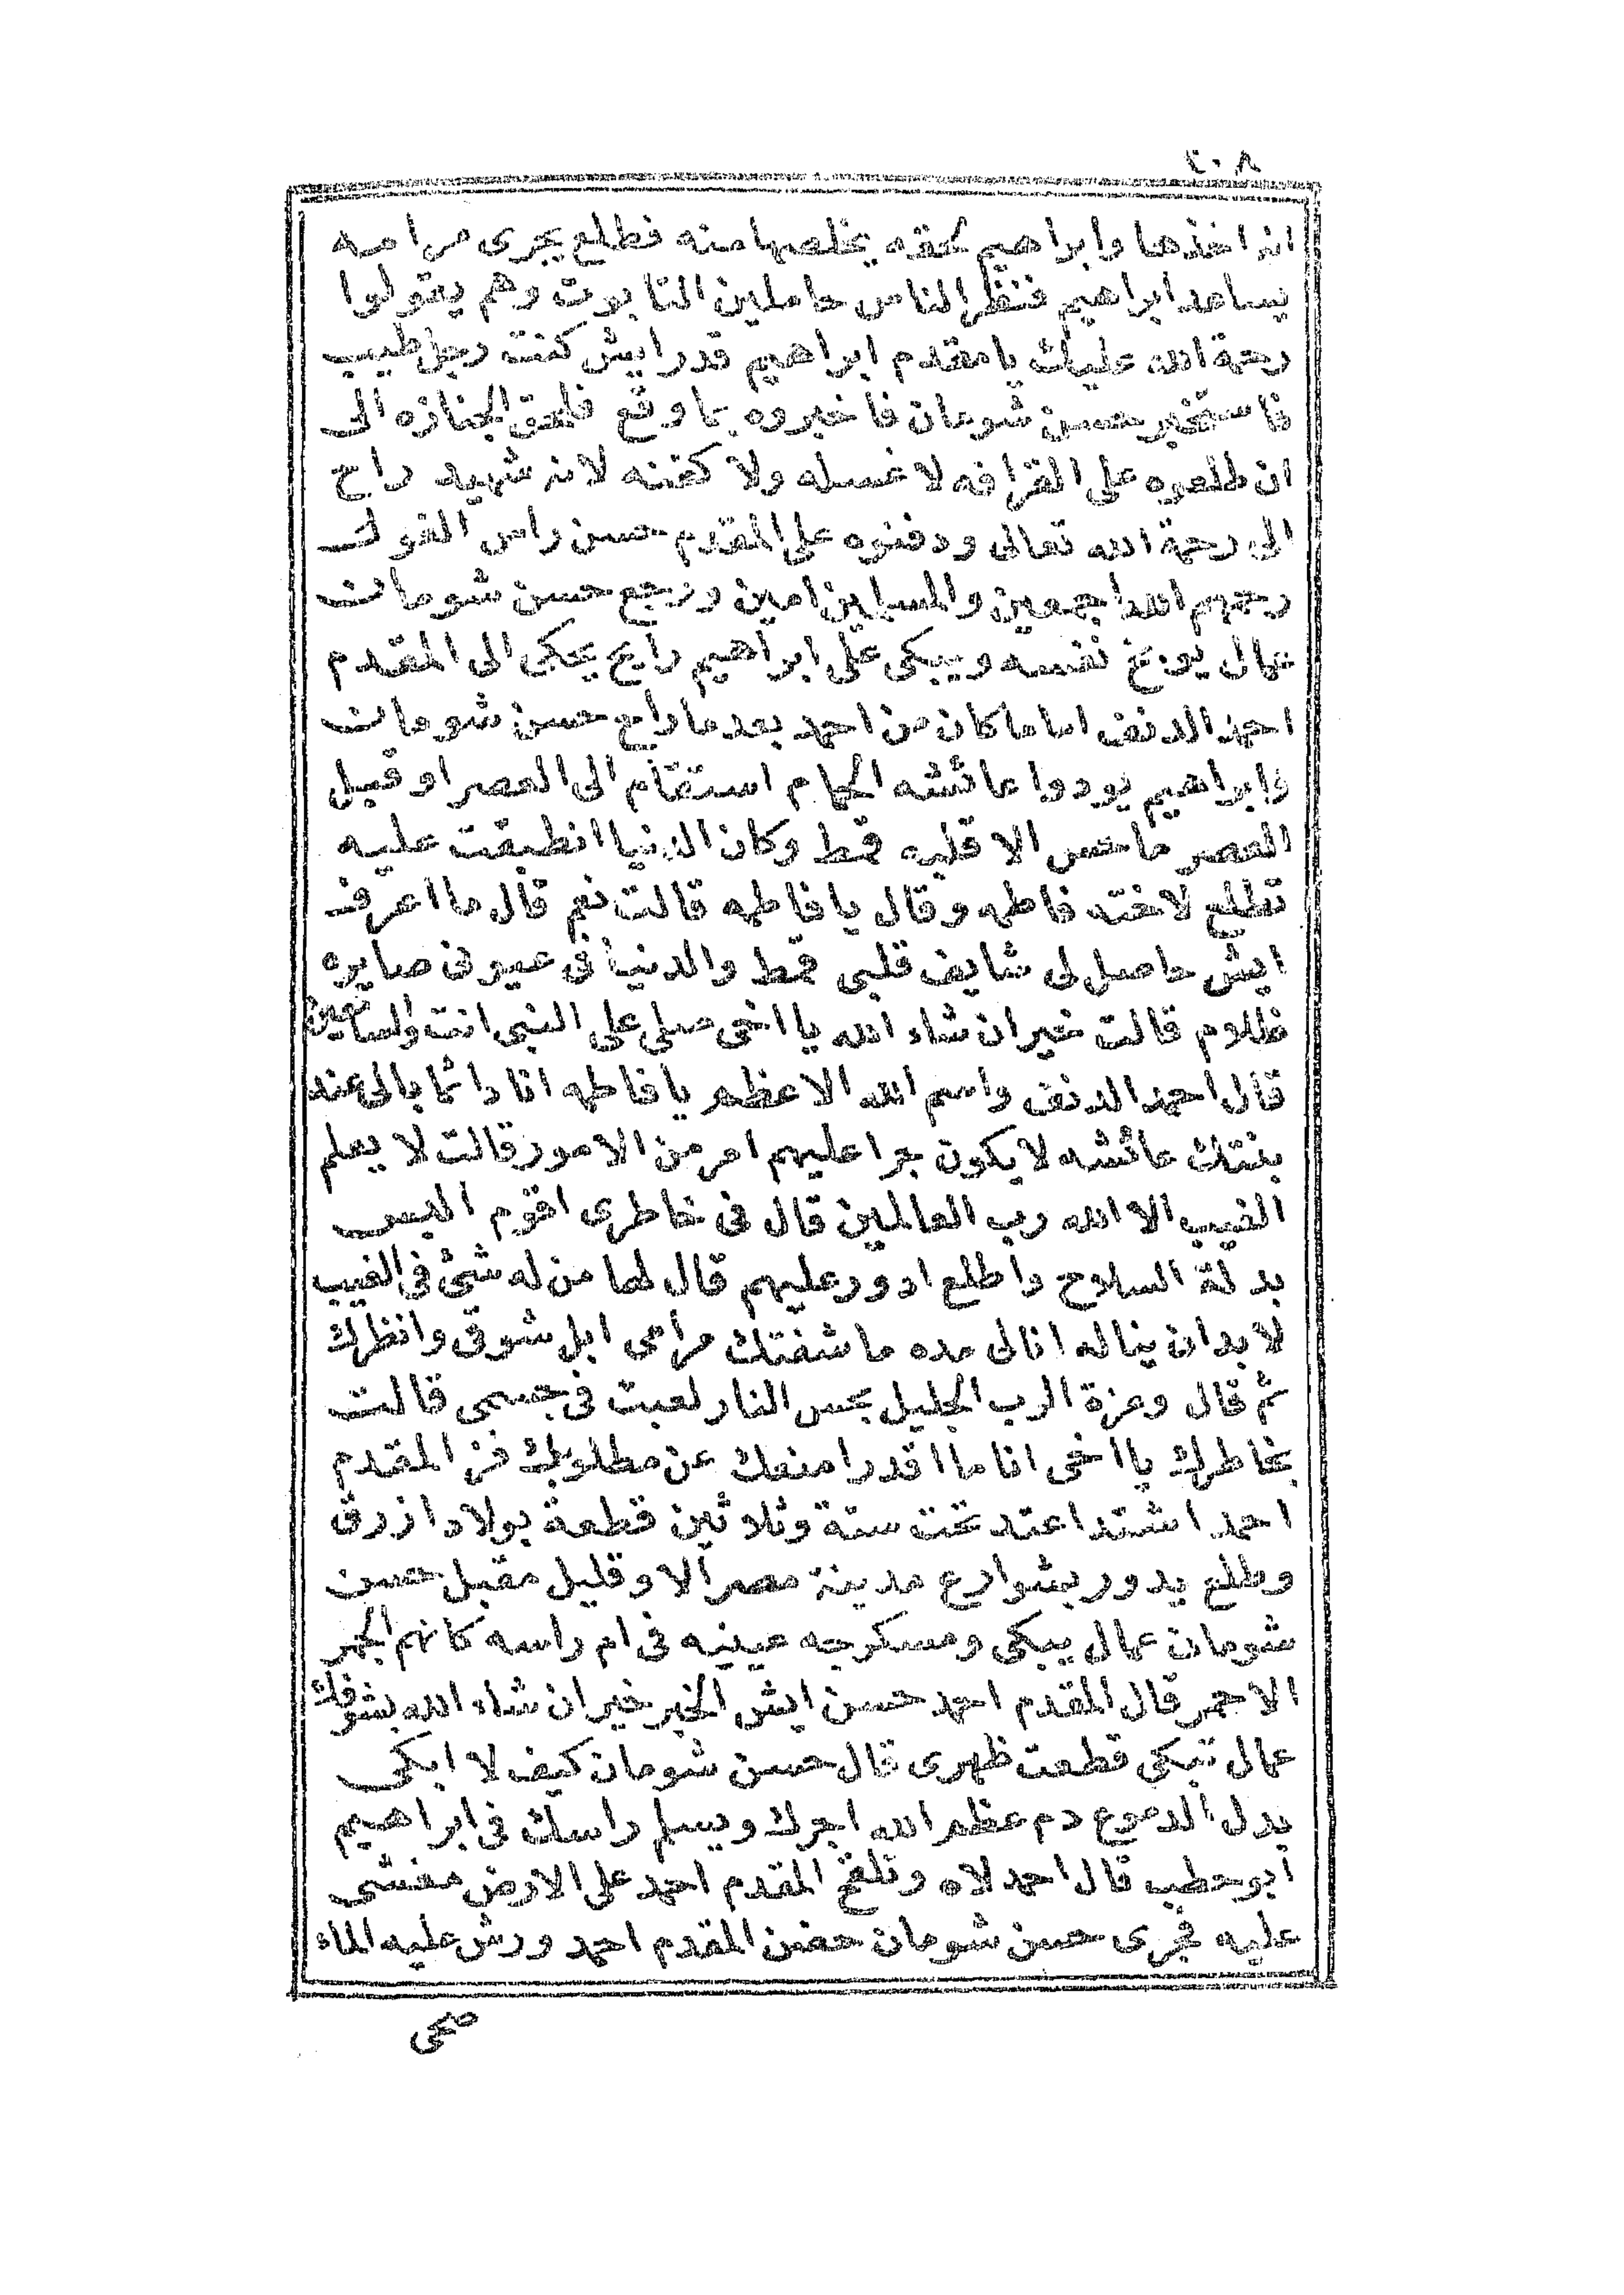 ٤٠٨
انه اخذها وابراهيم لحقه يخلصها منه فطلع يجرى مرامه
يساعد ابراهيم فنظر الناس حاملين التابوت وهم يقولوا
رحمة الله عليك يا مقدم ابراهيم قدر ايش كنت رجل طيب
فاستخبر حسن شومان فاخبروه بما وقع فلحق الجنازه الى
ان طلعوه على القرافه لا غسله ولا كفنه لانه شهيد راح
الى رحمة الله تعالى ودفنوه على المقدم حسن راس الغول
رحمهم الله اجمعين والمسلمين امين ورجع حسن شومان
عمال يوبخ نفسه ويبكى على ابراهيم رايح يحكى الى المقدم
احمد الدنف اما ما كان من احمد بعد ما راح حسن شومان
وابراهيم يودوا عائشه الحمام استقام الى العصر او قبل
العصر ما حس الا قلبه قمط وكان الدنيا انطبقت عليه
تطلع لاخته فاطمه وقال يا فاطمه قالت نعم قال ما اعرف
ايش حاصل لى شايف قلبى قمط والدنيا فى عيونى صايره
ظلام قالت خير ان شاء الله يا اخى صلى على النبى انت والسامعين
قال احمد الدنف واسم الله الاعظم يا فاطمه انا دائما بالى عند
بنتك عائشه لا يكون جرا عليهم امر من الامور قالت لا يعلم
الغيب الا الله رب العالمين قال فى خاطرى اقوم البس
بدلة السلاح واطلع ادور عليهم قال لها من له شئ فى الغيب
لا بد ان يناله انا لى مده ما شفتك مرامى ابل شوقى وانظرك
ثم قال وعزة الرب الجليل بحس النار لعبت فى جسمى قالت
بخاطرك يا اخى انا ما اقدر امنعك عن مطلوبك فز المقدم
احمد اشتد اعتد تحت ستة وثلاثين قطعة بولاد ازرق
وطلع يدور بشوارع مدينة مصر الا وقليل مقبل حسن
شومان عمال يبكى ومسكرجه عينيه فى ام راسه كانهم الجمر
الاحمر قال المقدم احمد حسن ايش الخبر خير ان شاء الله بشوفك
عمال تبكى قطعت ظهرى قال حسن شومان كيف لا ابكى
بدل الدموع دم عظم الله اجرك ويسلم راسك فى ابراهيم
ابو حطب قال احمد لاه وتلقح المقدم احمد على الارض مغشى
عليه فجرى حسن شومان حضن المقدم احمد ورش عليه الماء
صحى